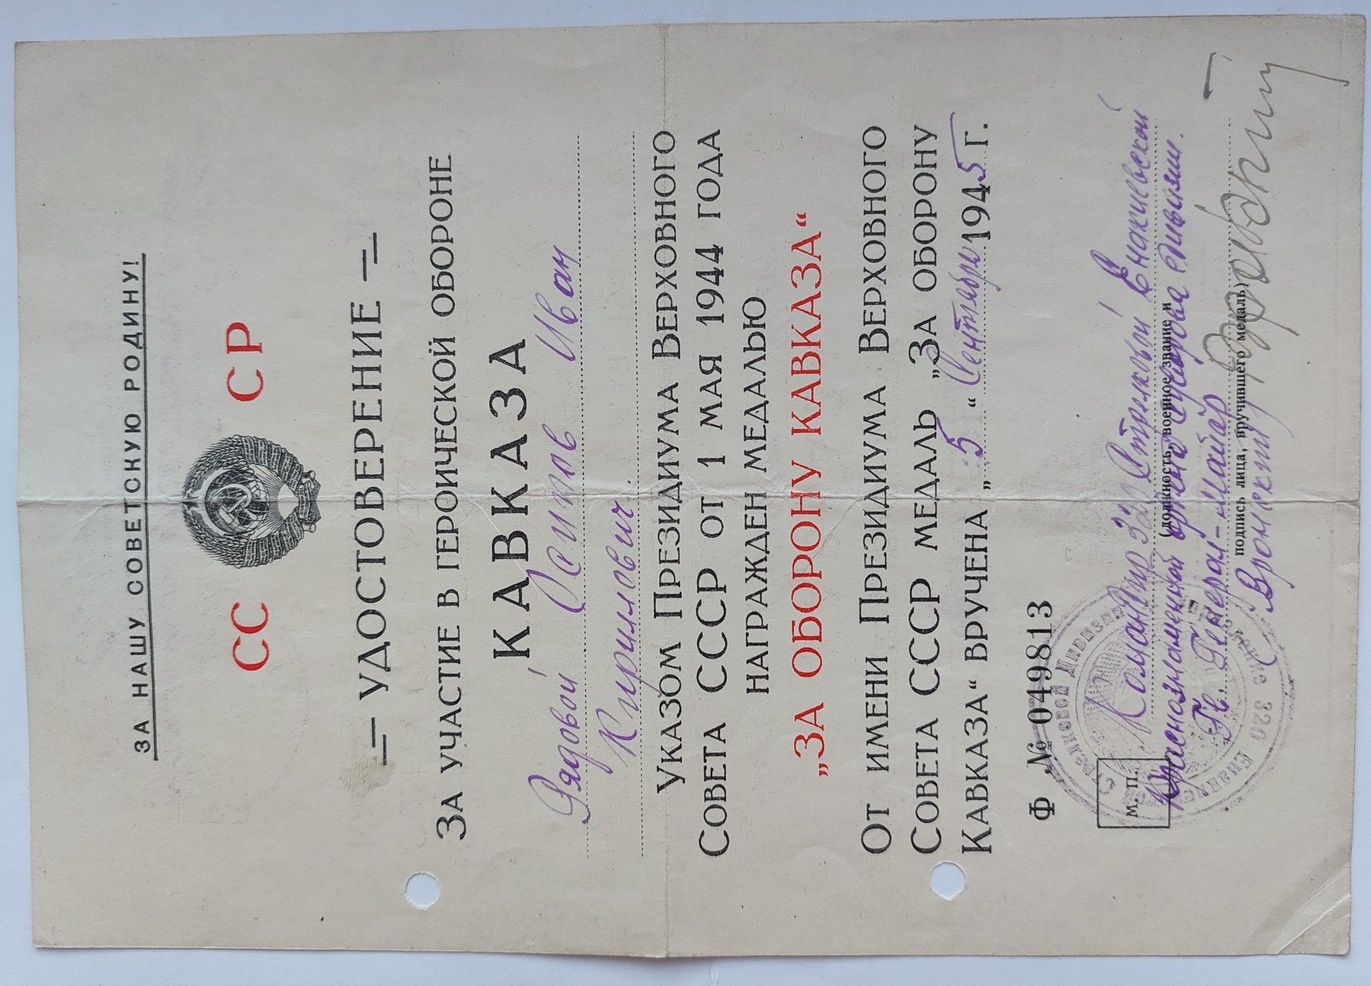 ЗА НАШУ СОВЕТСКУЮ РОДИНУ!
СС СР
УДОСТОВЕРЕНИЕ
ЗА УЧАСТИЕ В ГЕРОИЧЕСКОЙ ОБОРОНЕ
КАВКАЗА
Рядовой Осипов Иван
Кирилович.
УКАЗОМ ПРЕЗИДИУМА ВЕРХОВНОГО
СОВЕТА СССР ОТ 1 МАЯ 1944 ГОДА
НАГРАЖДЕН МЕДАЛЬЮ
„ЗА ОБОРОНУ КАВКАЗА“
ОТ ИМЕНИ ПРЕЗИДИУМА ВЕРХОВНОГО
СОВЕТА СССР МЕДАЛЬ „ЗА ОБОРОНУ
КАВКАЗА“ ВРУЧЕНА „5“ Сентября 1945 г.
Ф № 049813
М. П.
Командир 320 Стрелковой Енакиевской
(должность, военное звание и
Краснознаменной ордена Суворова дивизии.
Гв. Генерал-майор
подпись лица, вручившего медаль)
(Вронский)